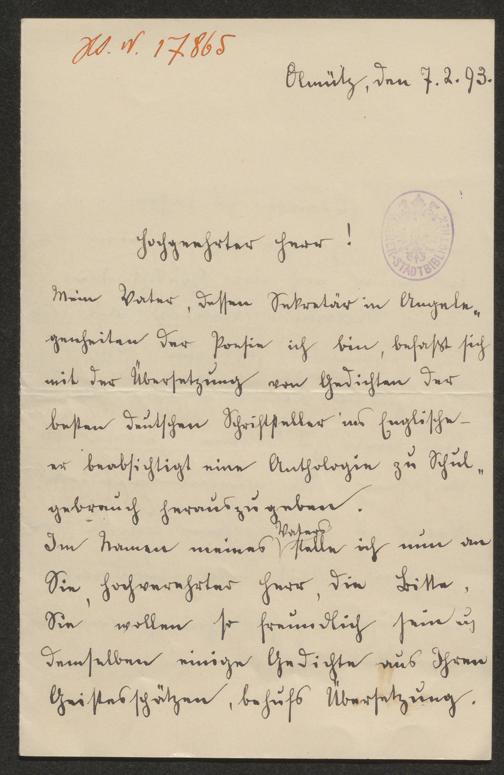 Hs. N. 17865
Olmütz, den 7. 2. 93.
STADTBIBL
Hochgeehrter Herr !
Mein Vater, dessen Sekretär in Angele„
genheiten der Poesie ich bin, befaßt sich
mit der Übersetzung von Gedichten der
besten deutschen Schriftsteller ins Englische –
er beabsichtigt eine Anthologie zu Schul„
gebrauch herauszugeben.
Vaters
Im Namen meines stelle ich nun an
Sie, hochverehrter Herr, die Bitte,
Sie wollen so freundlich sein u.
demselben einige Gedichte aus Ihren
Geistesschätzen, behufs Übersetzung.